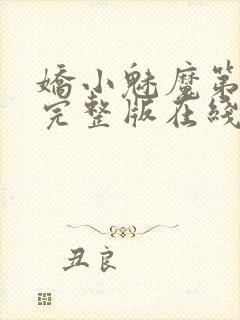 嬌小魅魔第
完整版在綫
丑良